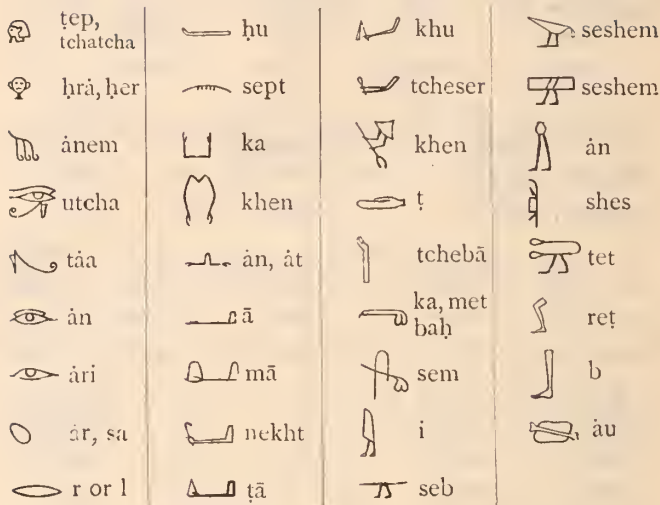 ṭep,
tchatcha
ḥrȧ, ḥer
ȧnem
utcha
tȧa
ȧn
ȧri
ȧr, sa
r or l
ḥu
sept
ka
khen
ȧn, ȧt
ā
mā
nekht
ṭā
khu
tcheser
khen
ṭ
tchebā
ka, met
baḥ
sem
i
seb
seshem
seshem
ȧn
shes
tet
reṭ
b
ȧu